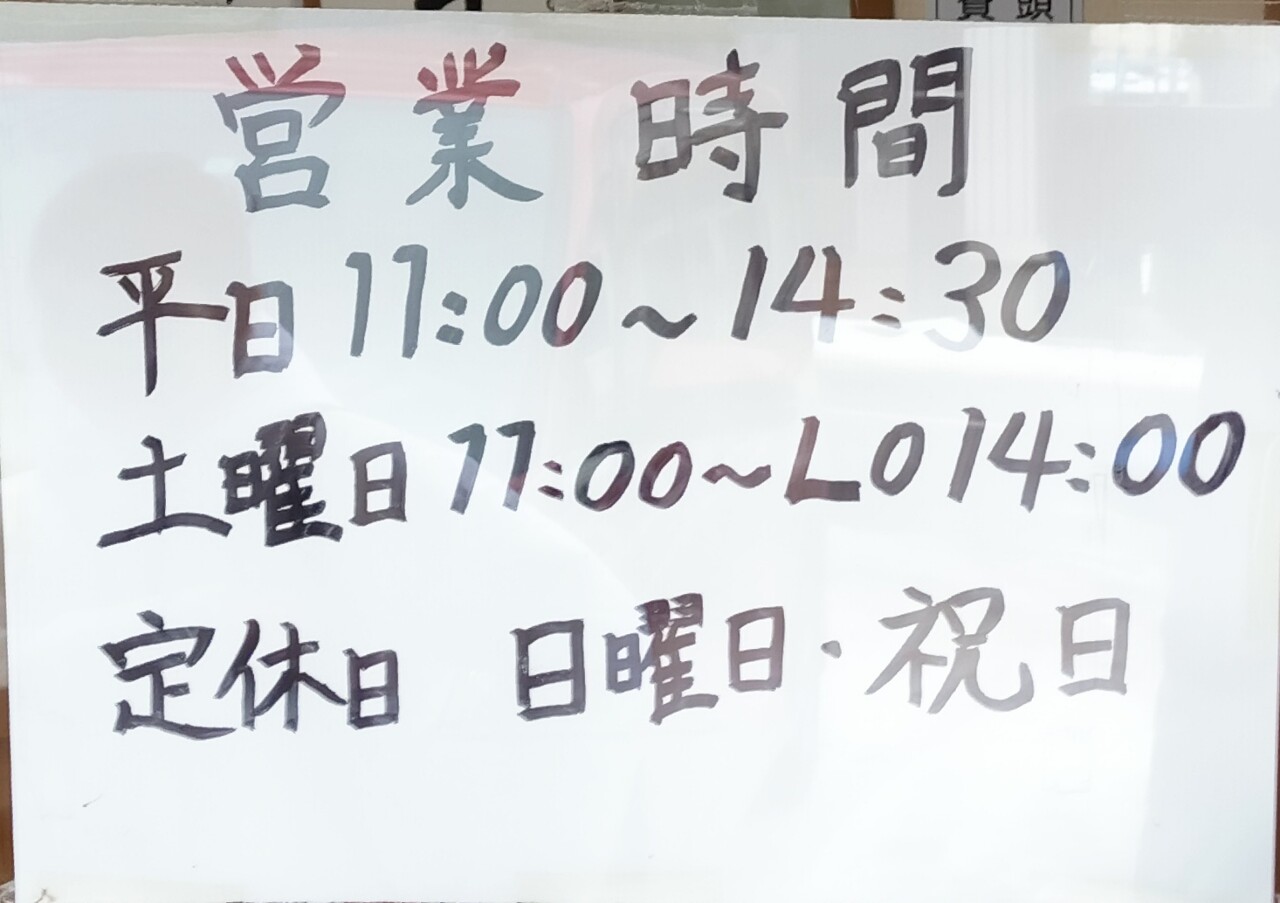 営業時間
平日 11:00～14:30
土曜日 11:00～LO 14:00
定休日 日曜日・祝日